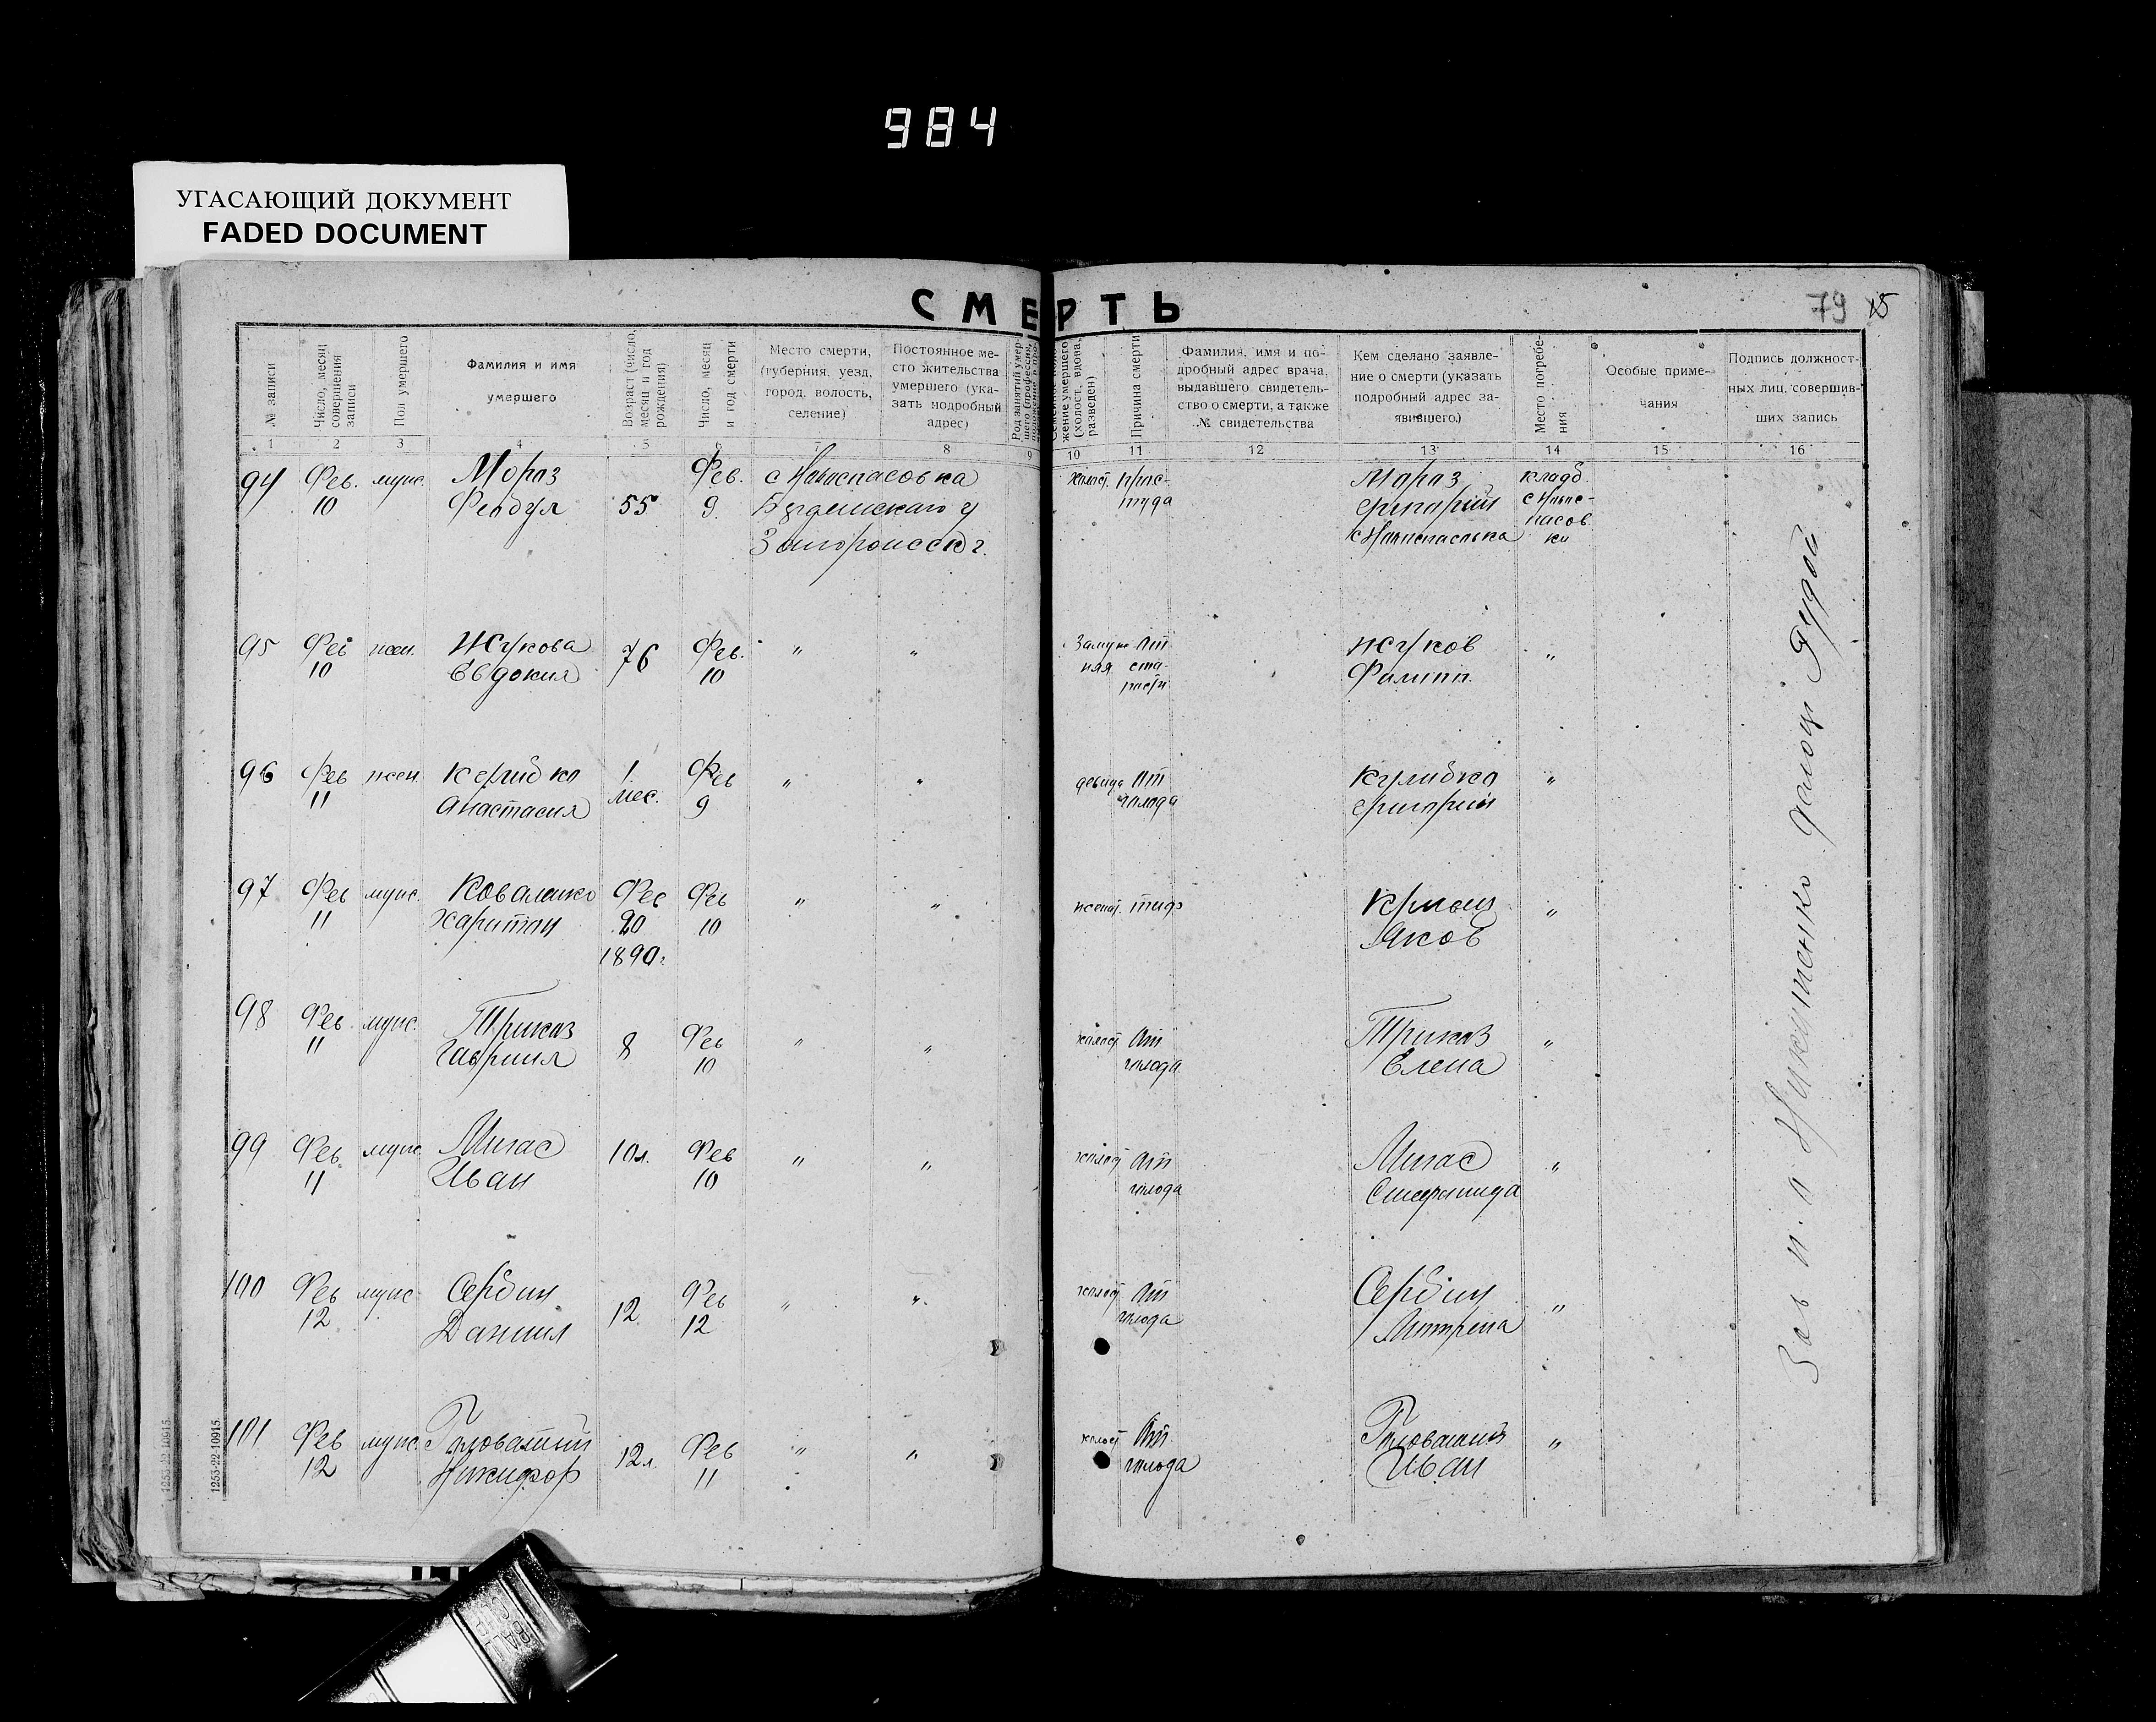 984
УГАСАЮЩИЙ ДОКУМЕНТ
FADED DOCUMENT
СМЕРТЬ
79
№ записи
Число, месяц совершения записи
Пол умершего
Фамилия и имя умершего
Возраст (число, месяц и год рождения)
Число, месяц и год смерти
Место смерти, (губерния, уезд, город, волость, селение)
Постоянное место жительства умершего (указать подробный адрес)
Причина смерти
Фамилия, имя и подробный адрес врача, выдавшего свидетельство о смерти, а также № свидетельства
Кем сделано заявление о смерти (указать подробный адрес заявившего)
Место погребения
Особые примечания
Подпись должностных лиц, совершивших запись
1 2 3 4 5 6 7 8 9 10 11 12 13 14 15 16
94 Фев. муж. Мораз Фев. с Новоспасовка холост. прос- Мораз кладб.
10 55 9 Бердянского у туда Григорий с Ново-
Запорожск г. с Новоспасовка спасов
ки
95 Фев жен. Жукова 76 Фев. " " Замуж От Жуков "
10 Евдокия 10 няя ста- Филипп
рости
96 Фев жен. 1 Фев " " девица От "
11 Анастасия мес. 9 голода Григорий
97 Фев муж. Коваленко Фев Фев " " женат. тиф "
11 Харитон 20 10 Яков
1890 г
98 Фев муж. Приказ 8 Фев " " холост От Приказ "
11 Гавриил 10 голода Елена
99 Фев. муж Мигас 10 л. Фев " " холост От Мигас "
11 Иван 10 голода
100 Фев муж Сербин 12 Фев " " холост От Сербин "
12 Даниил 12 голода
101 Фев муж. Головатый 12 л. Фев " " холост От Головатый "
12 Никифор 11 голода Иван
1253-22-10915